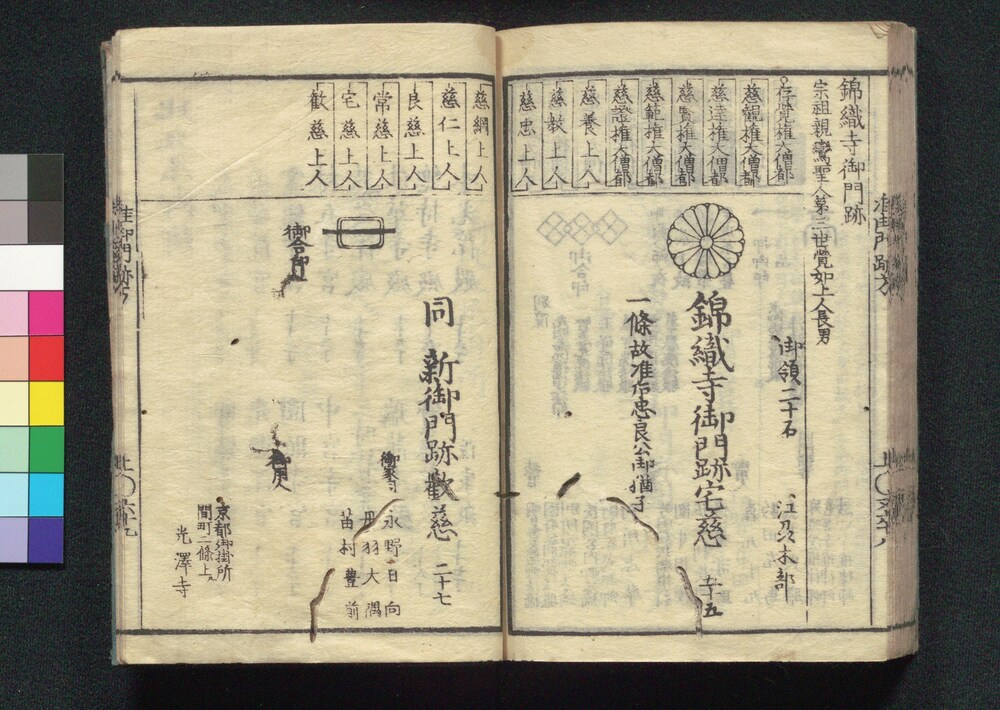 錦織寺御門跡
宗祖親鸞聖人第三世覚如上人長男
存覚権大僧都
慈観権大僧都
慈達権大僧都
慈賢権大僧都
慈範権大僧都
慈證権大僧都
慈養上人
慈教上人
慈忠上人
御領二十石
江刕木部
錦織寺御門跡宅慈
五十五
一條故准后忠良公御猶子
准御門跡方
慈綱上人
慈仁上人
良慈上人
常慈上人
宅慈上人
歓慈上人
御合印
同 新御門跡歓慈 二十七
御家司
永野日向
丹羽大隅
苗村豊前
御用人
京都御掛所
間町二條上ル
光澤寺
准御門跡方